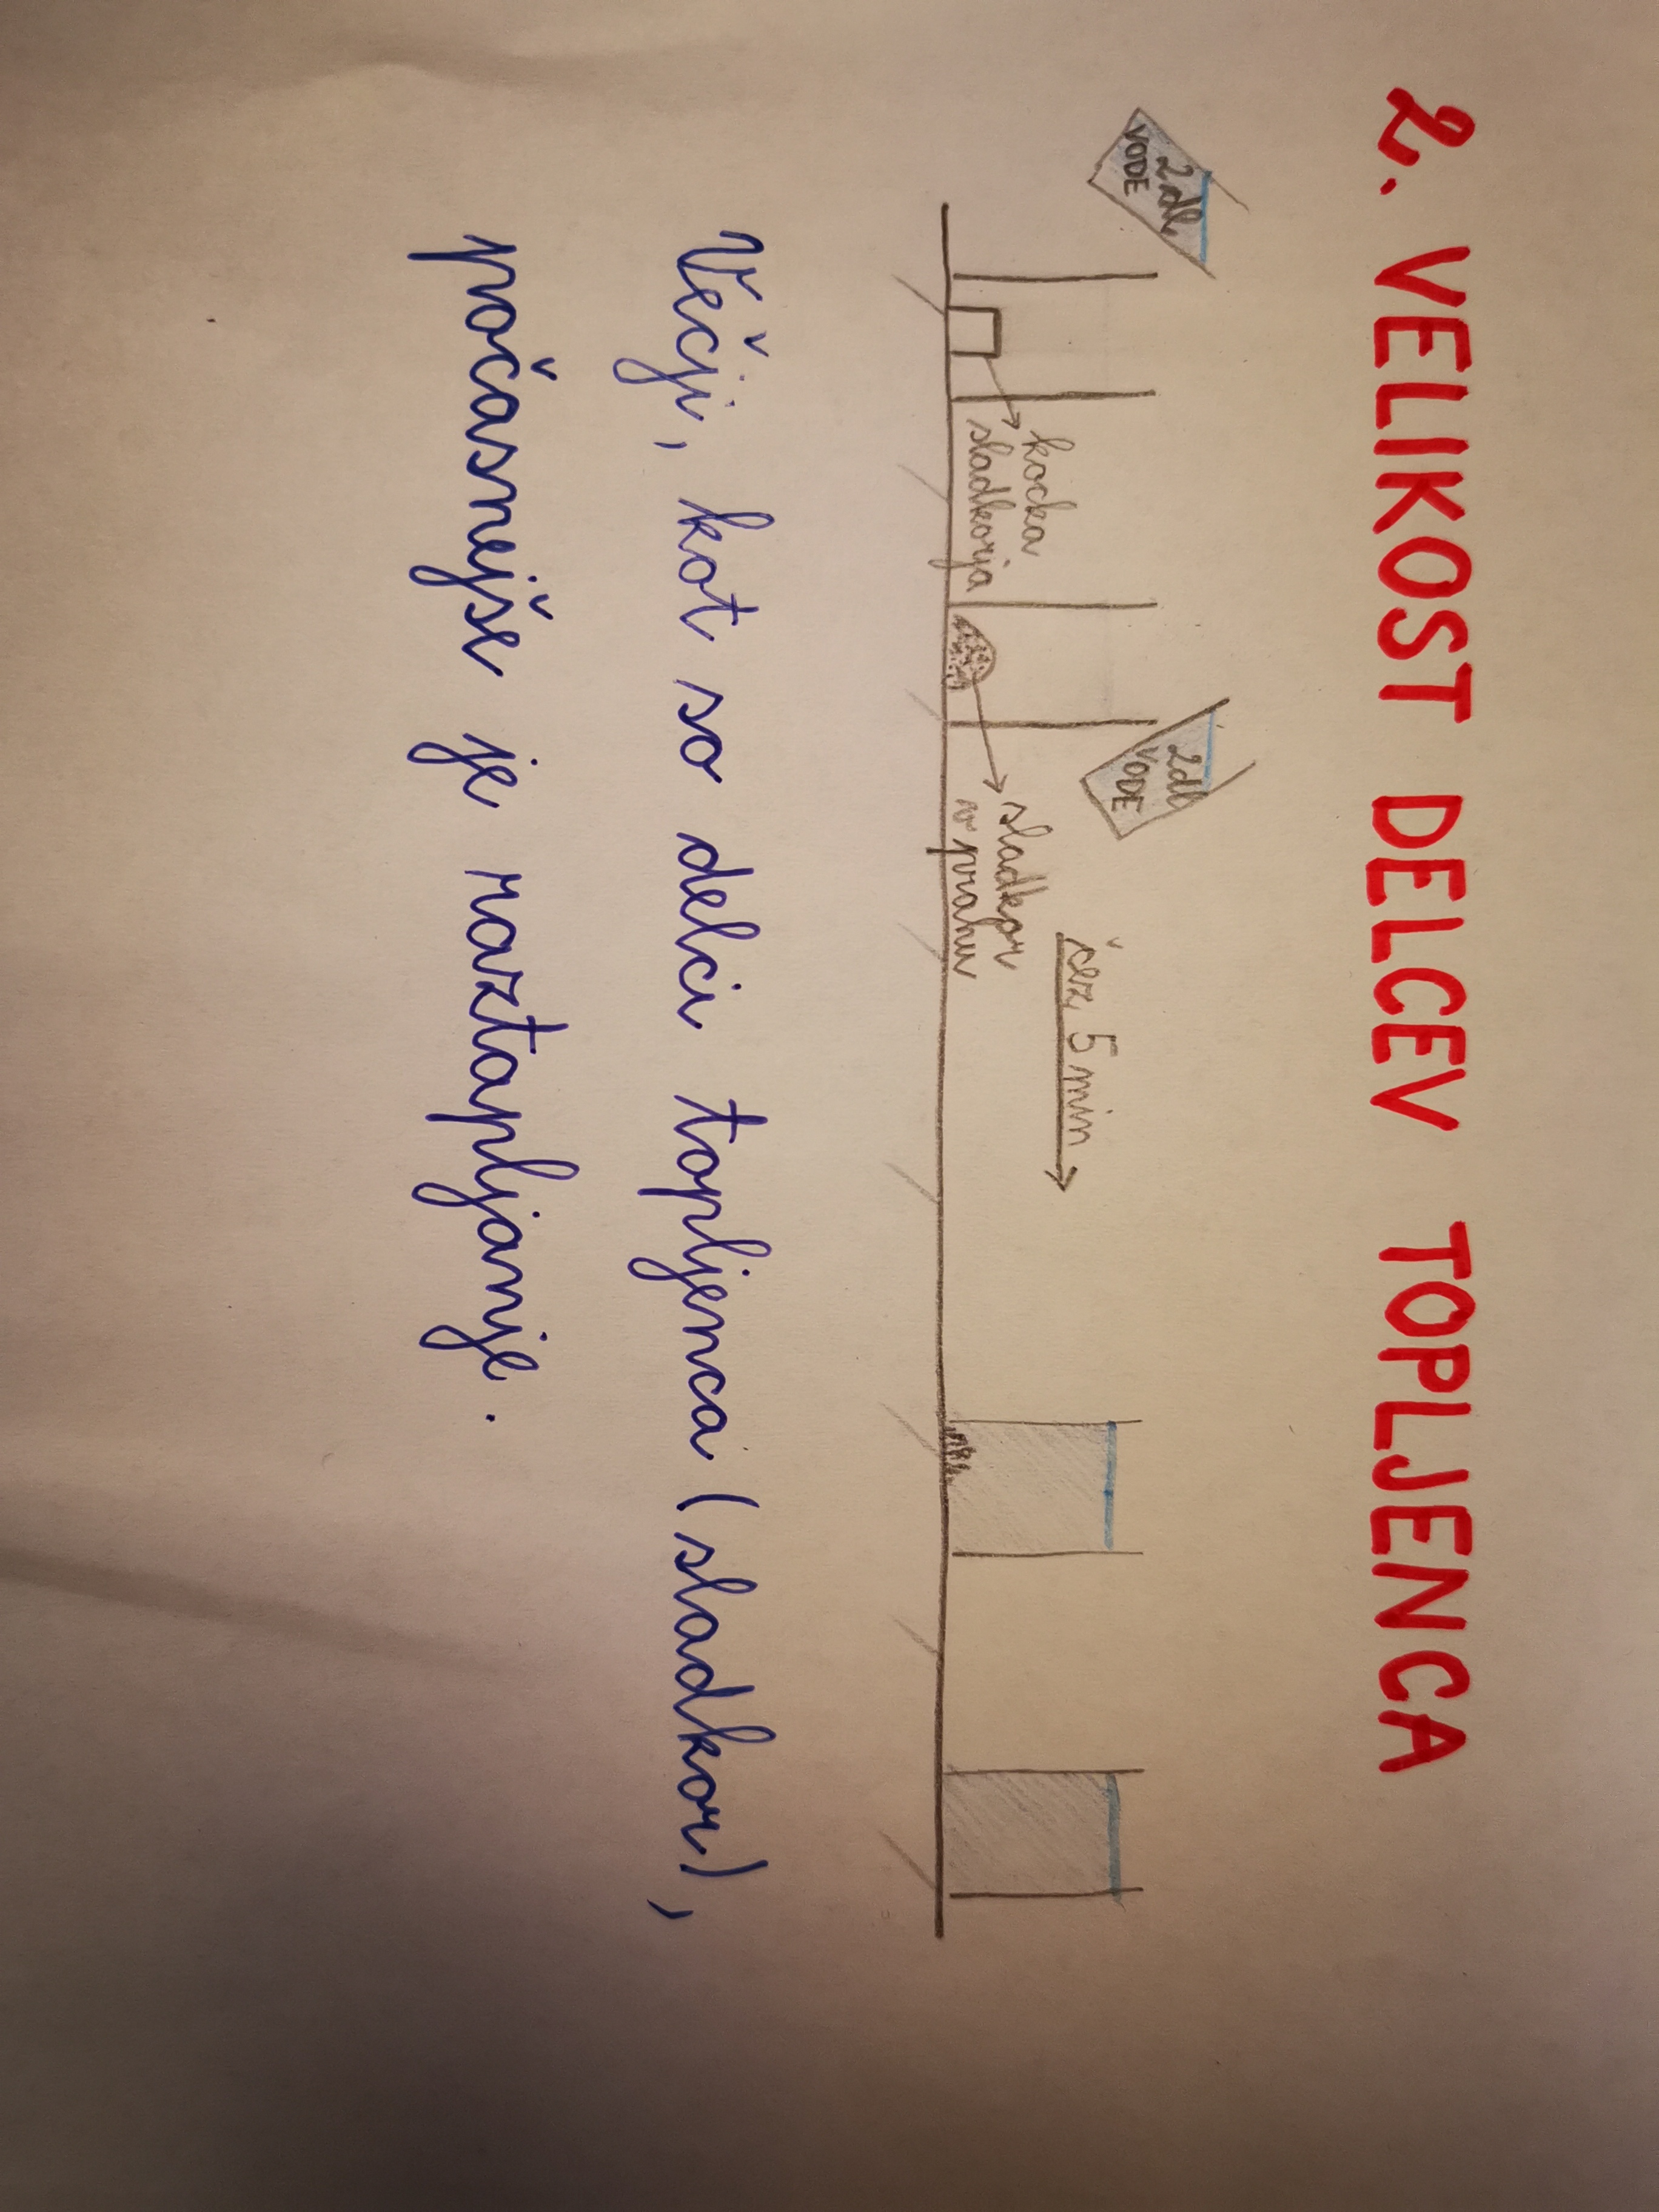 2. VELIKOST DELCEV TOPLJENCA
2dl
VODE
2dl
VODE
kocka
sladkorja
sladkor
v prahu
čez 5 min
Večji, kot so delci topljenca (sladkor),
počasnejše je raztapljanje.